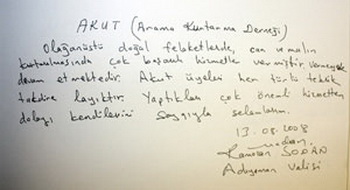 AKUT (Arama Kurtarma Derneği)
Olağanüstü doğal felaketlerde, can ve malın
kurtulmasında çok başarılı hizmetler vermiştir, vermeye de
devam etmektedir. Akut üyeleri her türlü teknik
takdire layıktır. Yaptıkları çok önemli hizmetten
dolayı kendilerini saygıyla selamlarım.
13.08.2008
Ramazan SODAN
Adıyaman Valisi